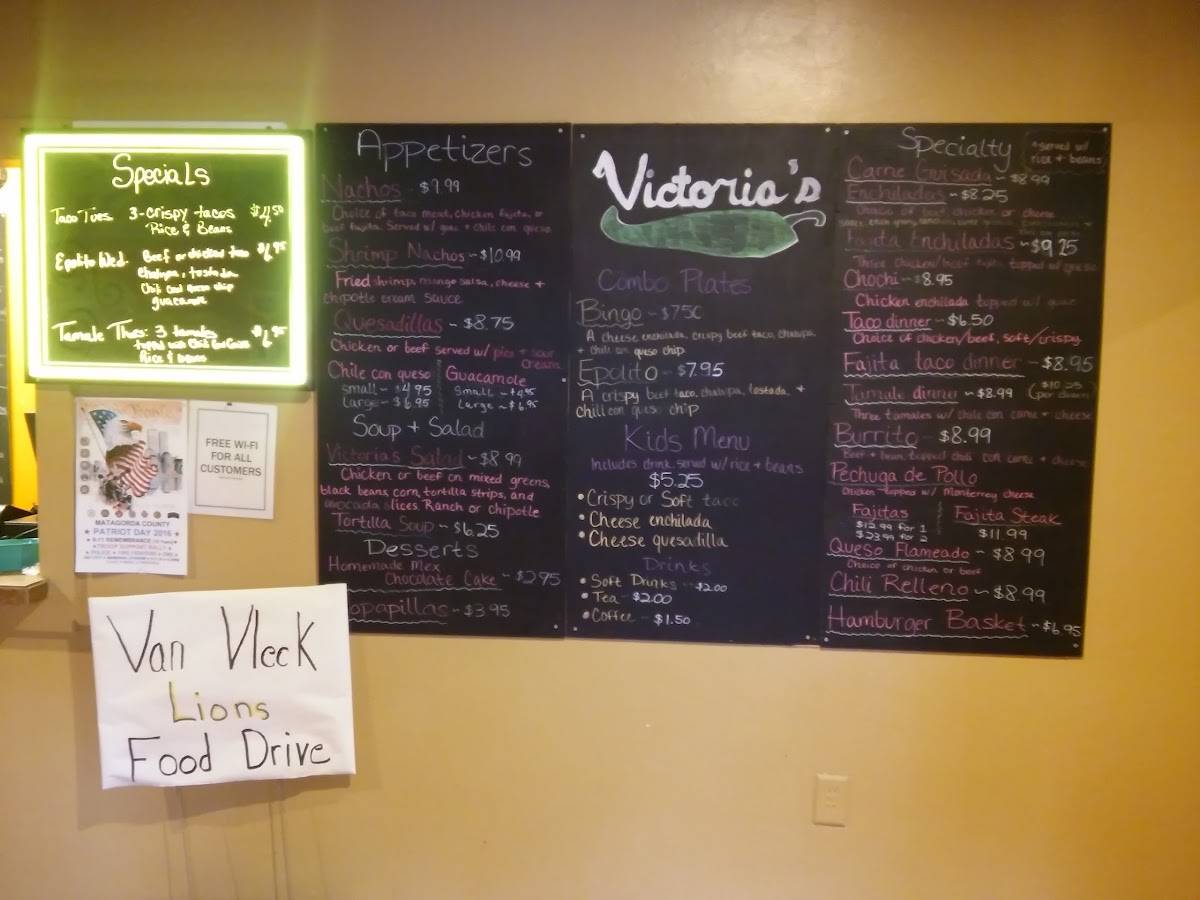 Specials
Taco Tues. 3-Crispy tacos $4.50
Rice & Beans
Epolito Wed. Beef or chicken taco $6.95
chalupa, tostada
Chili con queso chip
guacamole
Tamale Thurs: 3 tamales
Rice & beans
FREE WI-FI
FOR ALL
CUSTOMERS
MATAGORDA COUNTY
PATRIOT DAY 2016
Van Vleck
Lions
Food Drive
Appetizers
Nachos - $7.99
Choice of taco meat, chicken fajita, or
beef fajita. Served w/ guac + chili con queso
Shrimp Nachos ~ $10.99
Fried shrimp, mango salsa, cheese +
chipotle cream sauce
Quesadillas ~ $8.75
Chicken or beef served w/ pico + sour
cream
Chile con queso
small ~ $4.95
Large ~ $6.95
Guacamole
Small ~ $4.95
Large ~ $6.95
Soup + Salad
Victoria's Salad ~ $8.99
Chicken or beef on mixed greens,
black beans, corn, tortilla strips, and
avocado slices. Ranch or chipotle
Tortilla Soup ~ $6.25
Desserts
Homemade Mex
Chocolate Cake ~ $2.95
Sopapillas ~ $3.95
Victoria's
Combo Plates
Bingo ~ $7.50
A cheese enchilada, crispy beef taco, chalupa,
+ chili con queso chip
Epolito ~ $7.95
A crispy beef taco, chalupa, tostada, +
chili con queso chip
Kids Menu
Includes drink, served w/ rice + beans
$5.25
• Crispy or Soft taco
• Cheese enchilada
• Cheese quesadilla
Drinks
• Soft Drinks -- $2.00
• Tea ~ $2.00
• Coffee - $1.50
Specialty
*served w/
rice + beans
Carne Guisada ~ $8.99
Enchiladas ~ $8.25
Choice of beef, chicken or cheese
Fajita Enchiladas ~ $9.25
Chochi ~ $8.95
Chicken enchilada topped w/ guac
Taco dinner ~ $6.50
Choice of chicken/beef, soft/crispy
Fajita taco dinner ~ $8.95
Tamale dinner ~ $8.99
Three tamales w/ chili con carne + cheese
Burrito ~ $8.99
Beef + bean, topped chili con carne + cheese
Pechuga de Pollo
Chicken topped w/ Monterrey cheese
Fajitas
$12.99 for 1
$23.99 for 2
Fajita Steak
$11.99
Queso Flameado ~ $8.99
Choice of chicken or beef
Chili Relleno ~ $8.99
Hamburger Basket ~ $6.95